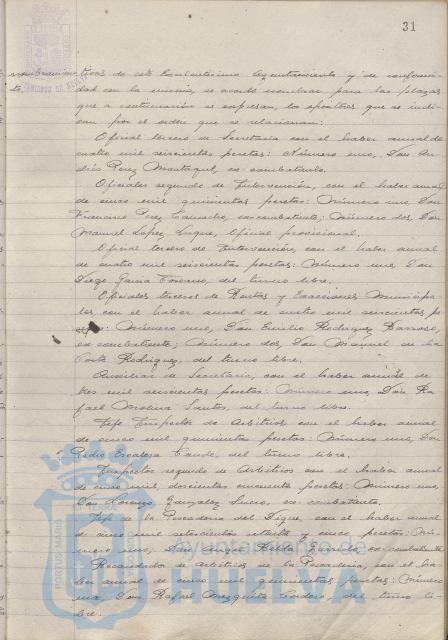 31
nombramien- tivas de este Excelentísimo Ayuntamiento y de conformi-
to. dad con la misma, se acordó nombrar para las plazas
que a continuación se expresan, los opositores que se indi-
can por el orden que se relacionan:
Oficial tercero de Secretaría con el haber anual de
cuatro mil seiscientas pesetas: Número uno, Don An-
drés Perez Montagut, ex-combatiente.
Oficiales segundo de Intervención, con el haber anual
de cinco mil quinientas pesetas: Número uno, Don
Francisco Perez Camacho, excombatiente; Número dos, Don
Manuel Lopez Luque, Oficial provisional.
Oficial tercero de Intervención, con el haber anual
de cuatro mil seiscientas pesetas: Número uno, Don
Diego Garcia, del turno libre.
Oficiales terceros de Rentas y Exacciones Municipa-
les con el haber anual de cuatro mil seiscientas pe
setas: Número uno, Don Emilio Rodriguez Barroso,
ex combatiente; Número dos, Don Manuel de la
Corte Rodriguez, del turno libre.
Auxiliar de Secretaría, con el haber anual de
tres mil seiscientas pesetas: Número uno, Don Ra
fael Molina Santos, del turno libre.
Jefe Inspector de Arbitrios con el haber anual
de cinco mil quinientas pesetas: Número uno, Don
Pedro del turno libre.
Inspector segundo de Arbitrios con el haber anual
de cinco mil, doscientas cincuenta pesetas: Número uno,
Don Lorenzo Gonzalez ex-combatiente.
Jefe de la Pescadería del Dique, con el haber anual
de cinco mil setecientas setenta y cinco pesetas: Nú-
mero uno, Don Enrique ex-combatiente
Recaudador de Arbitrios de la Pescadería, con el ha-
ber anual de cinco mil quinientas pesetas: Número
uno, Don Rafael Mezquita Cordero, del turno li-
bre.
Ayuntamiento de
HUELVA
PORTUS MARIS